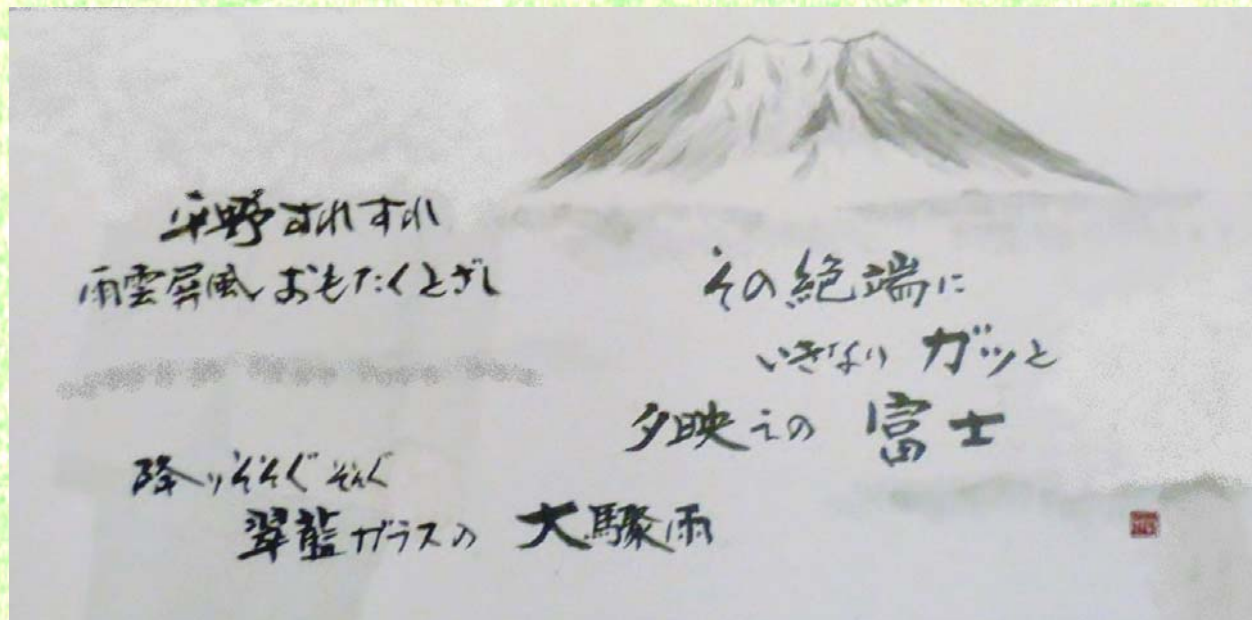 平野すれすれ
雨雲屏風おもたくとざし
その絶端に
いきなり ガッと
夕映えの 富士
降りそそぐ そそぐ
翠藍ガラスの 大驟雨